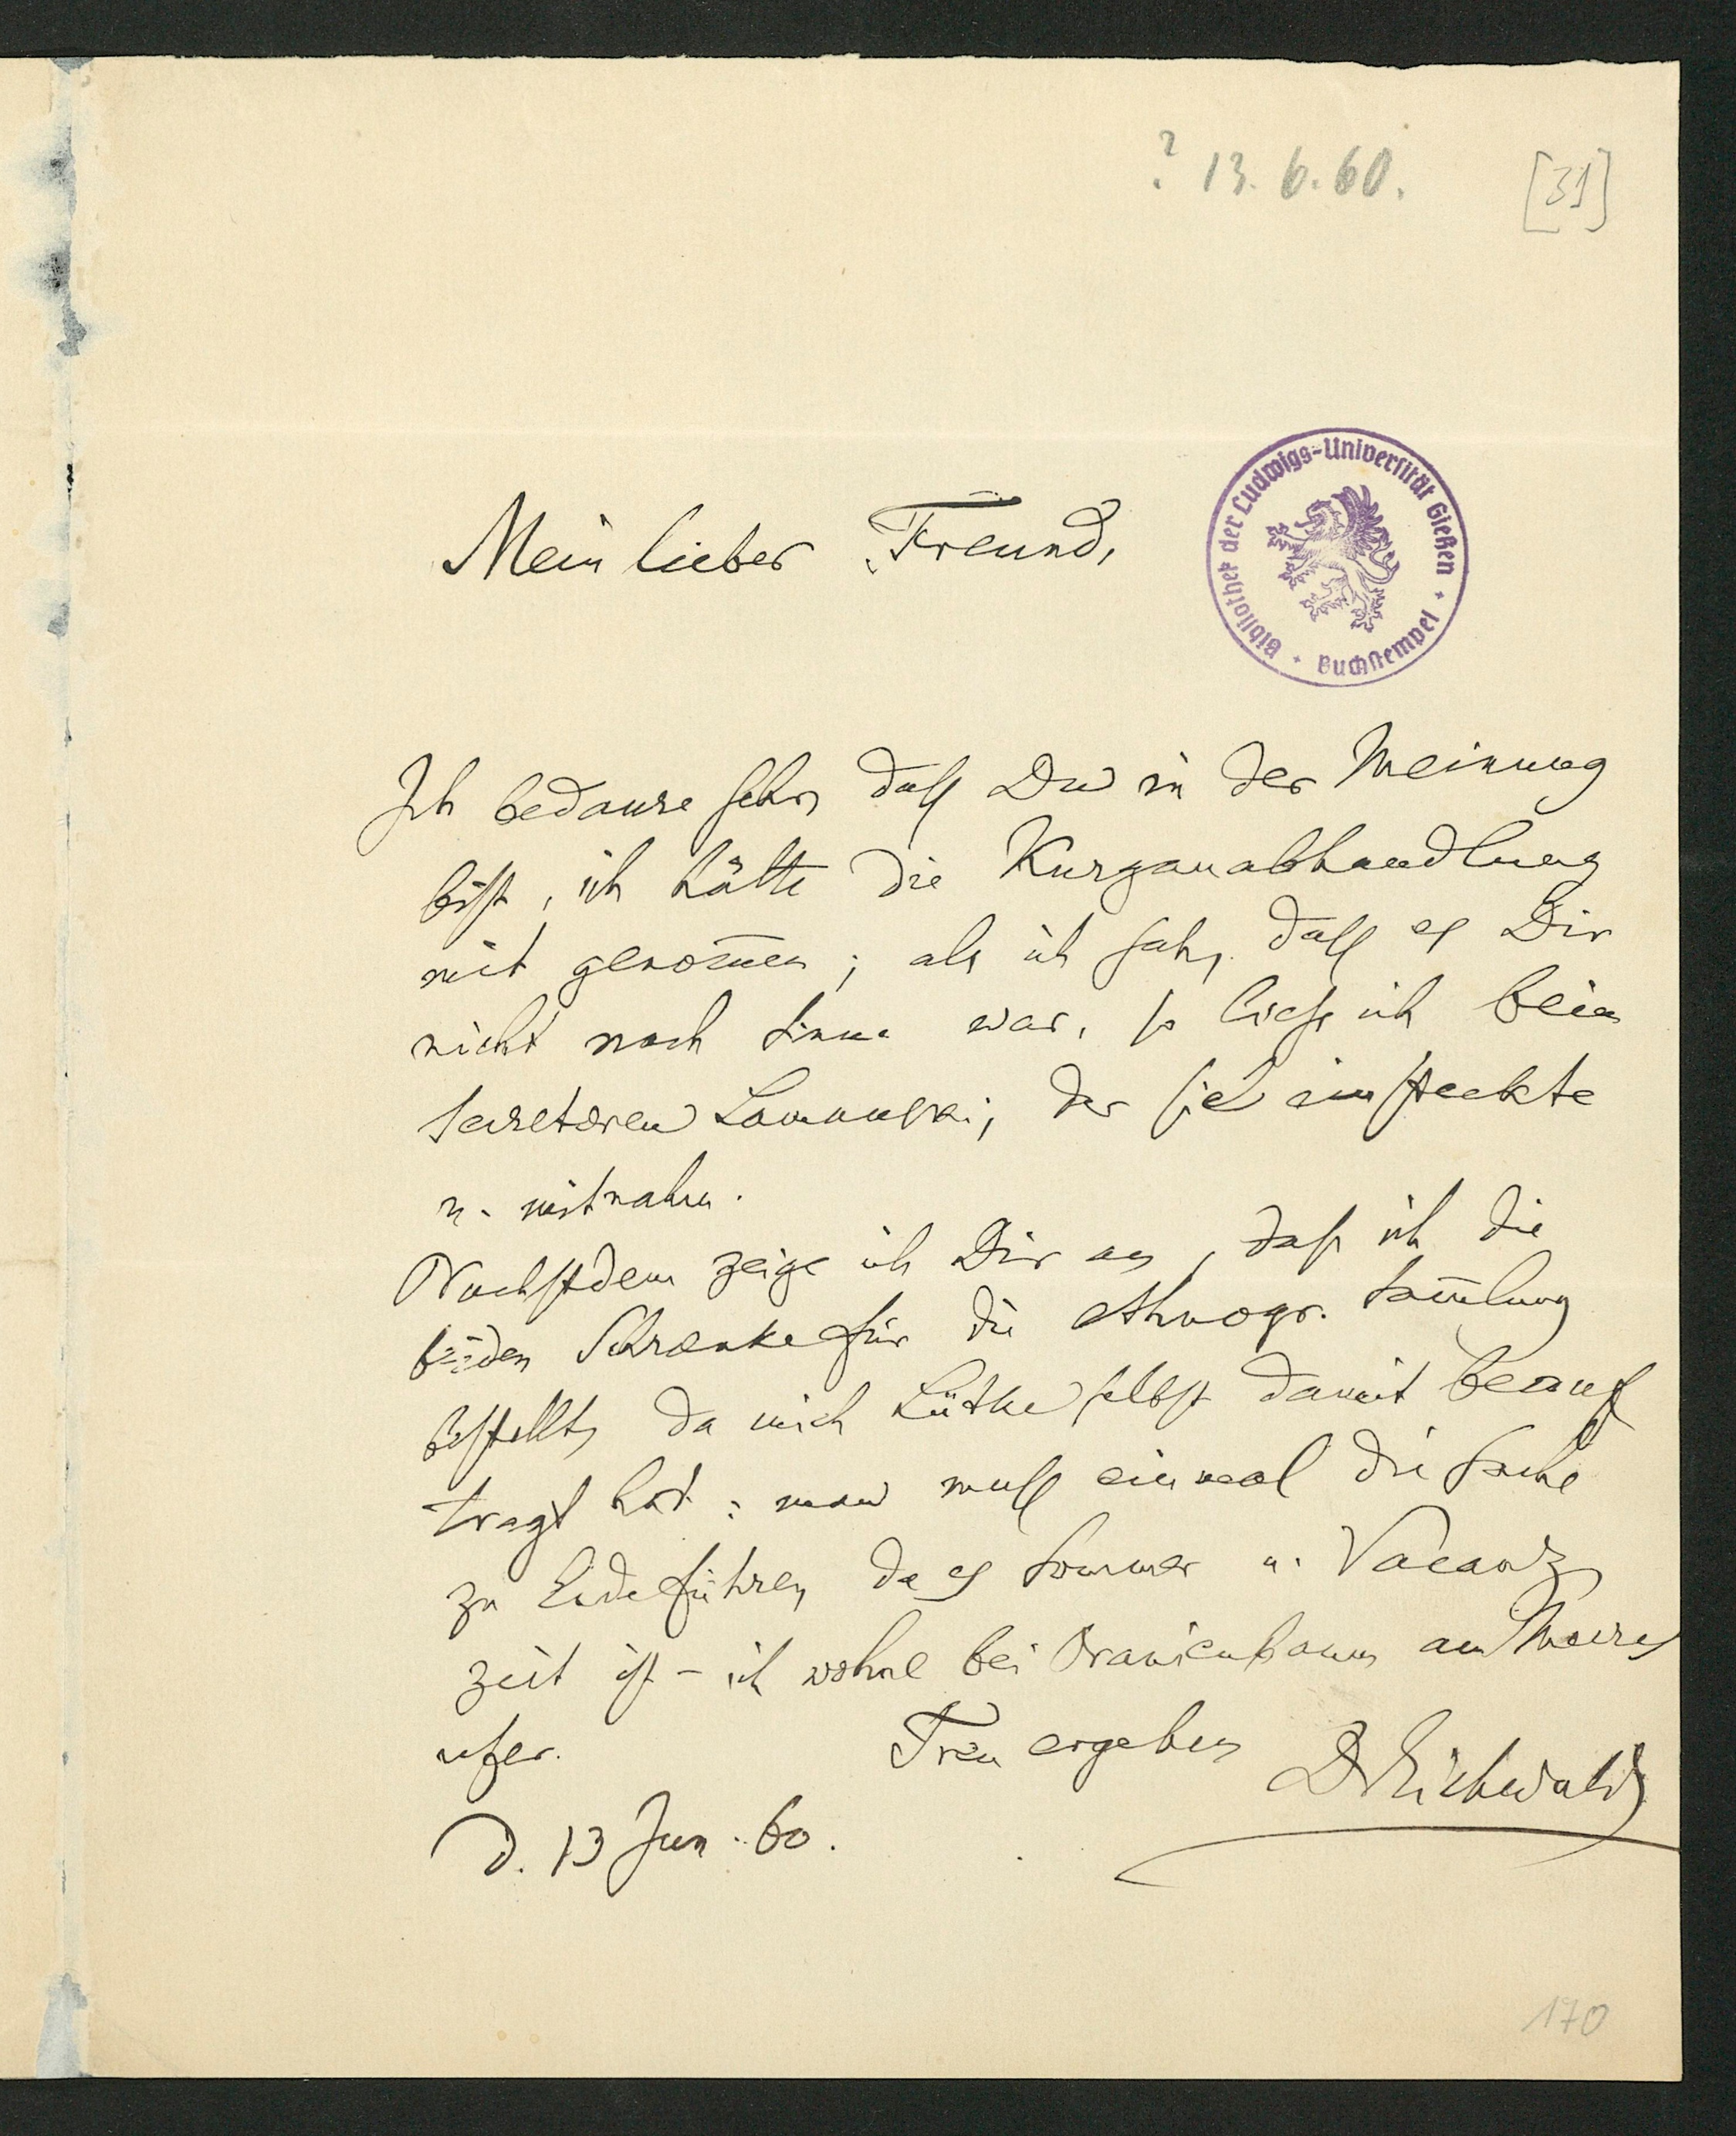 ? 13. 6. 60.
[31]
Bibliothek der Ludwigs-Universität Gießen
Buchstempel
Mein lieber Freund,
Ich bedaure sehr, daß Du in der Meinung
bist, ich hätte die Kurganabhandlung
mit genom̅en; als ich sah, daß es Dir
nicht nach Sinne war, so ließ ich beim
Secretären Lamanski, der sie einsteckte
u. mitnahm.
Nächstdem zeige ich Dir an, daß ich die
beiden Schraenke für die ethnogr. Sam̅lung
bestellt, da mich Lütke selbst damit beauf
tragt hat: man muß einmal die Sache
zu Ende führen, da es Sommer u. Vacanz
zeit ist – ich wohne bei Oranienbaum am Meeres
ufer.
Treu ergeben
D Eichwald
d. 13 Jun. 60.
170